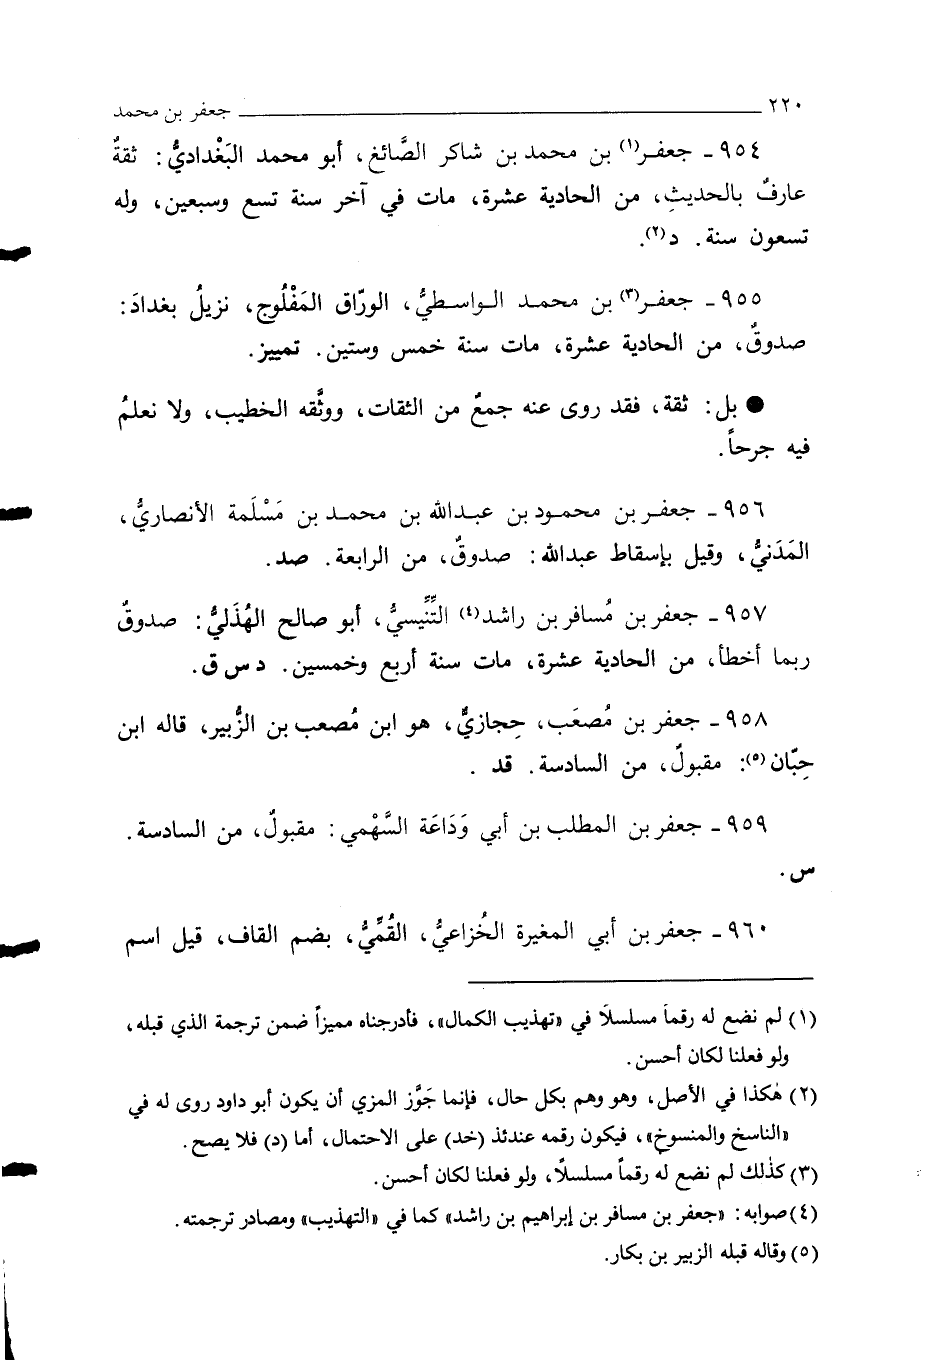 ٢٢٠ جعفر بن محمد
٩٥٤ ـ جعفـر(١) بن محمد بن شاكر الصَّائغ، أبو محمد البَغْداديُّ: ثقةٌ
عارفٌ بالحديثِ، من الحادية عشرة، مات في آخر سنة تسع وسبعين، وله
تسعون سنة. د(٢).
٩٥٥ ـ جعفـر(٣) بن محمـد الـواسـطيُّ، الورّاق المَفْلُوج، نزيلُ بغدادَ:
صدوقٌ، من الحادية عشرة، مات سنة خمس وستين. تمييز.
● بل: ثقة، فقد روى عنه جمعٌ من الثقات، ووثَّقه الخطيب، ولا نعلمُ
فيه جرحاً.
٩٥٦ ـ جعفـر بن محمـود بن عبـدالله بن محمـد بن مَسْلَمة الأنصاريُّ،
المَدَنيُّ، وقيل بإسقاط عبدالله: صدوقٌ، من الرابعة. صد.
٩٥٧ ـ جعفر بن مُسافر بن راشد(٤) التِّنِّيسيُّ، أبو صالح الهُذَليُّ: صدوقٌ
ربما أخطأ، من الحادية عشرة، مات سنة أربع وخمسين. د س ق.
٩٥٨ ـ جعفر بن مُصعَب، حِجازيٌّ، هو ابن مُصعب بن الزُّبير، قاله ابن
حِبّان(٥): مقبولٌ، من السادسة. قد .
٩٥٩ ـ جعفر بن المطلب بن أبي وَدَاعَة السَّهْمي: مقبولٌ، من السادسة.
س.
٩٦٠ ـ جعفر بن أبي المغيرة الخُزاعيُّ، القُمِّيُّ، بضم القاف، قيل اسم
(١) لم نضع له رقماً مسلسلاً في «تهذيب الكمال»، فأدرجناه مميزاً ضمن ترجمة الذي قبله،
ولو فعلنا لكان أحسن.
(٢) هٰكذا في الأصل، وهو وهم بكل حال، فإنما جَوَّز المزي أن يكون أبو داود روى له في
«الناسخ والمنسوخ»، فيكون رقمه عندئذ (خد) على الاحتمال، أما (د) فلا يصح.
(٣) كذٰلك لم نضع له رقماً مسلسلاً، ولو فعلنا لكان أحسن.
(٤) صوابه: «جعفر بن مسافر بن إبراهيم بن راشد» كما في «التهذيب» ومصادر ترجمته.
(٥) وقاله قبله الزبير بن بكار.